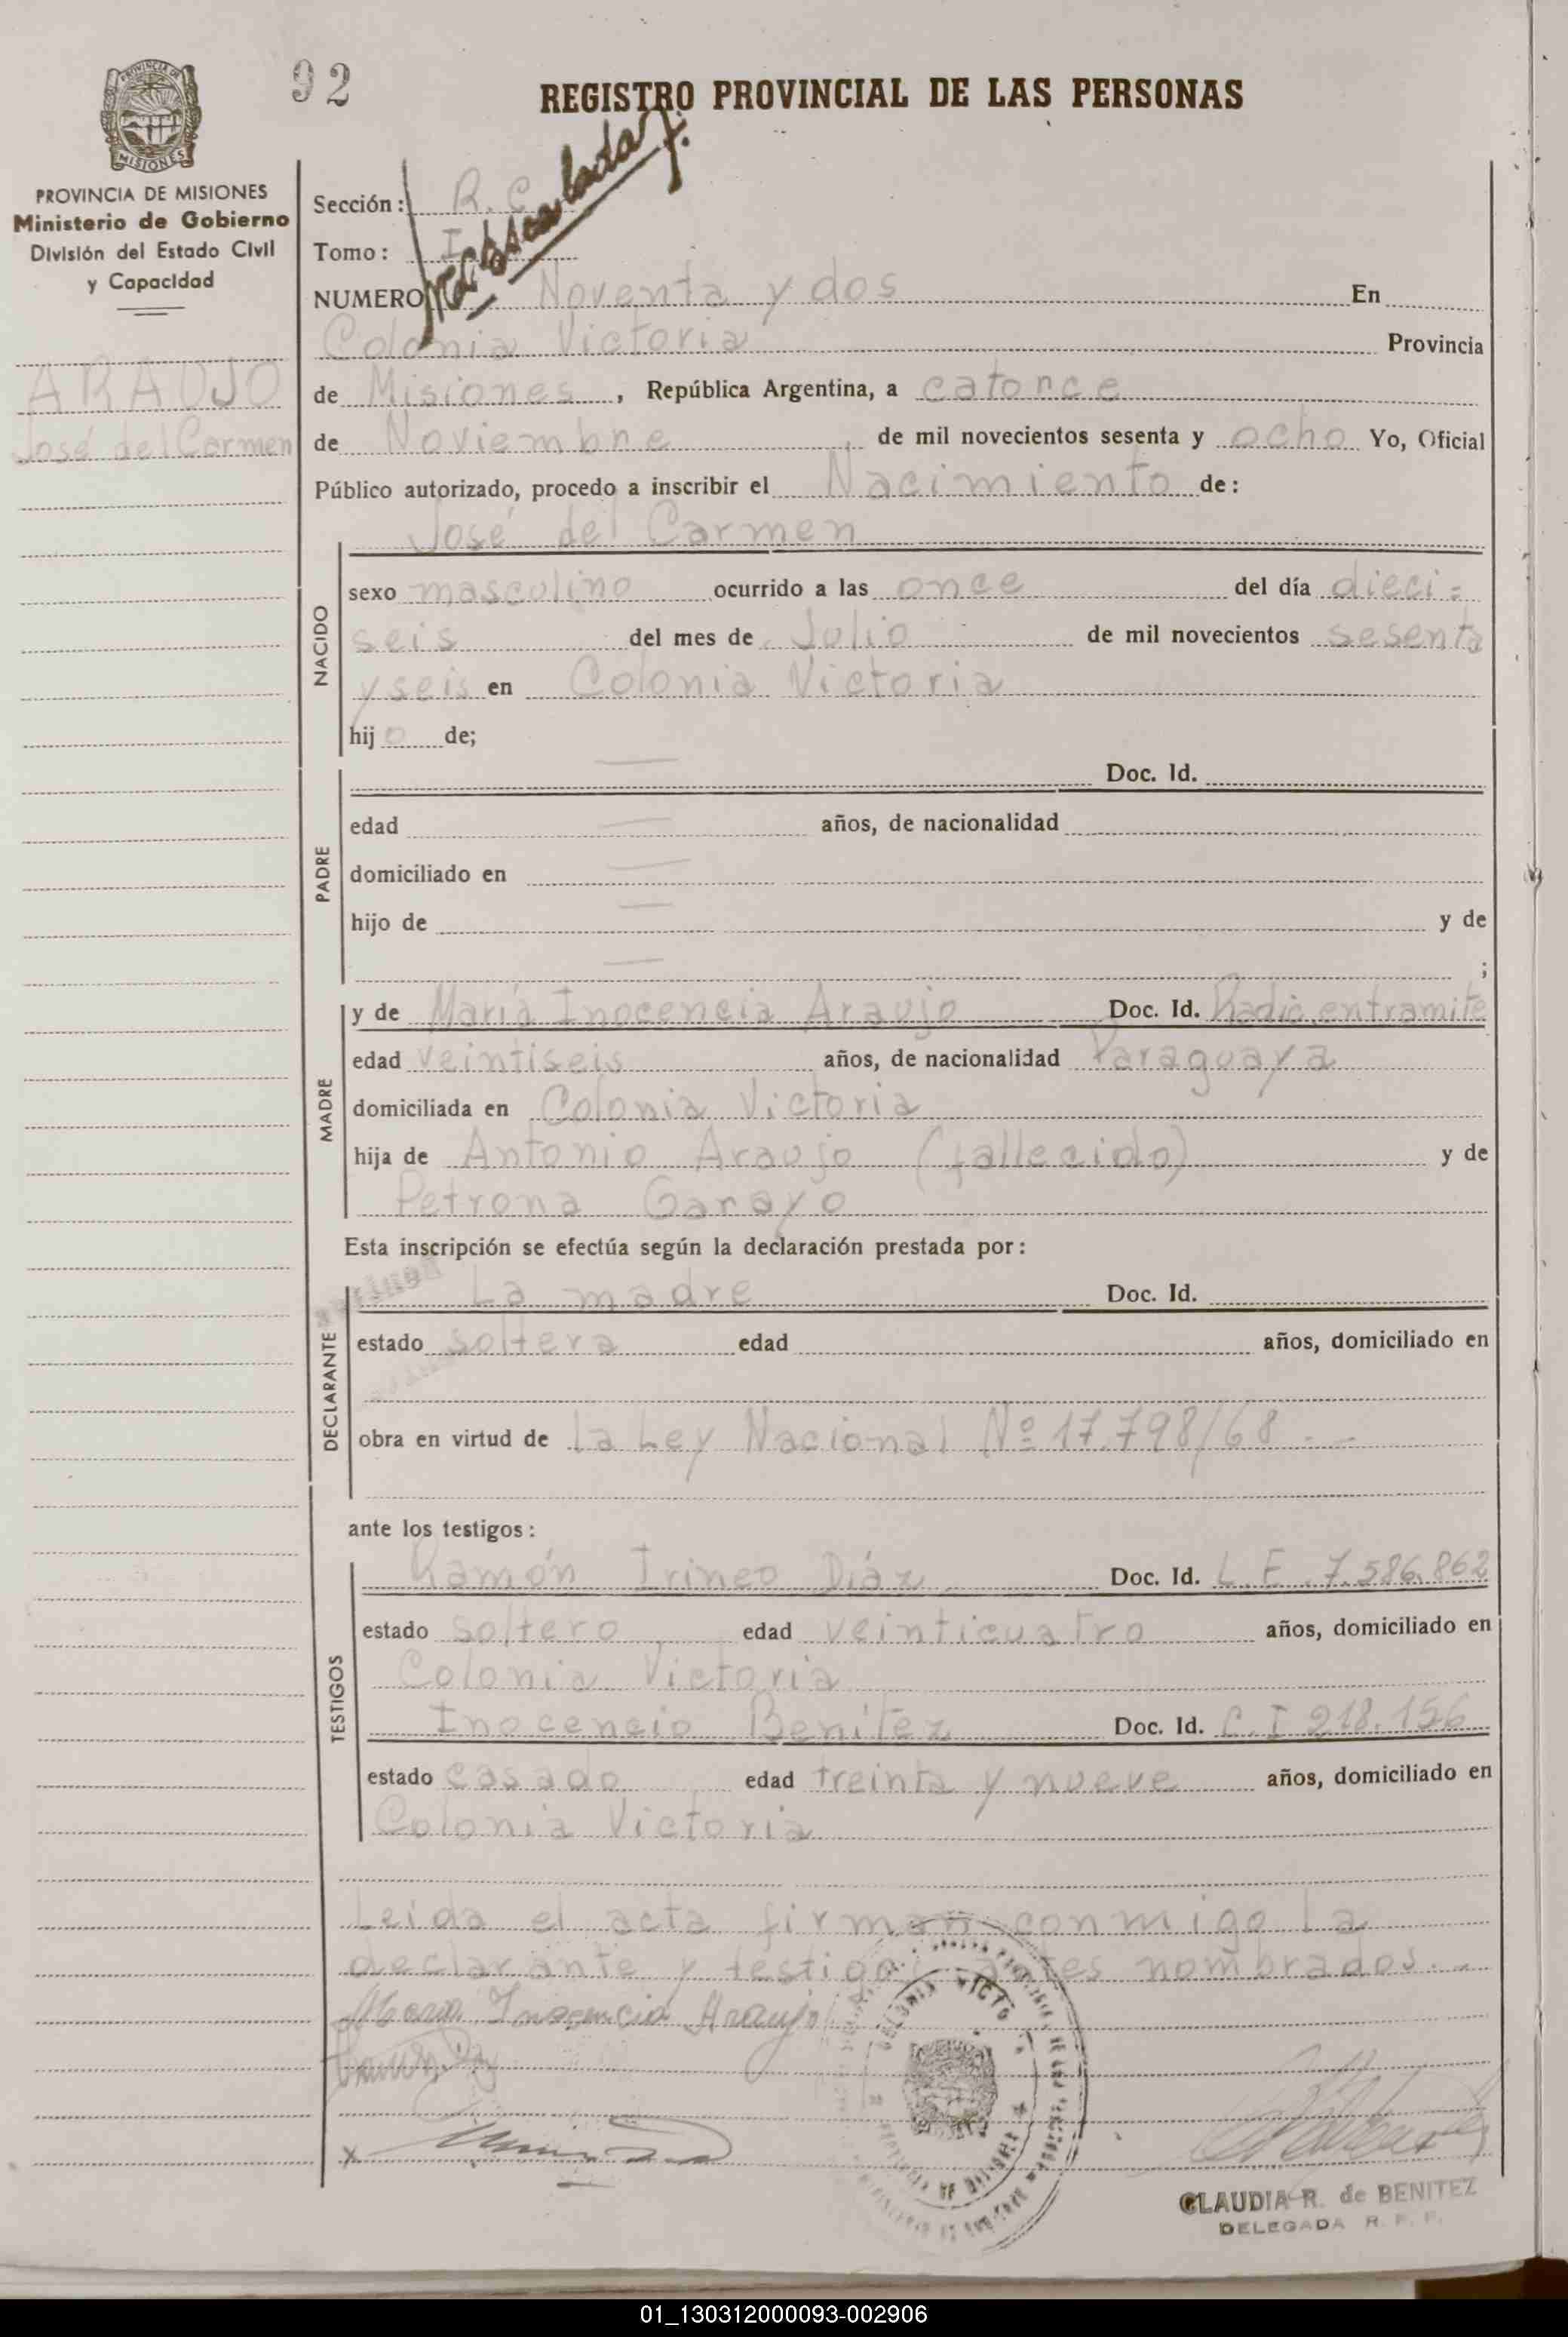 92
REGISTRO PROVINCIAL DE LAS PERSONAS
PROVINCIA DE MISIONES
Ministerio de Gobierno
División del Estado Civil
y Capacidad
ARAUJO
José del Carmen
Sección: R.C.
Tomo: I
NUMERO Noventa y dos En
Colonia Victoria Provincia
de Misiones, República Argentina, a catorce
de Noviembre de mil novecientos sesenta y ocho Yo, Oficial
Público autorizado, procedo a inscribir el Nacimiento de:
José del Carmen
NACIDO
sexo masculino ocurrido a las once del día dieci=
seis del mes de Julio de mil novecientos sesenta
y seis en Colonia Victoria
hijo de;
PADRE
Doc. Id.
edad años, de nacionalidad
domiciliado en
hijo de y de
;
MADRE
y de María Inocencia Araujo Doc. Id. Radic. entramite
edad veintiseis años, de nacionalidad Paraguaya
domiciliada en Colonia Victoria
hija de Antonio Araujo (fallecido) y de
Petrona Garayo
Esta inscripción se efectúa según la declaración prestada por:
DECLARANTE
La madre Doc. Id.
estado soltera edad años, domiciliado en
obra en virtud de la Ley Nacional Nº 17.798/68 - -
ante los testigos:
TESTIGOS
Ramón Irineo Díaz Doc. Id. L.E. 7.586.862
estado soltero edad veinticuatro años, domiciliado en
Colonia Victoria
Inocencio Benítez Doc. Id. C.I 218.156
estado casado edad treinta y nueve años, domiciliado en
Colonia Victoria
Leida el acta firman conmigo la
declarante y testigos antes nombrados.-
Maria Inocencia Araujo
CLAUDIA R. de BENITEZ
DELEGADA R. P. P.
01_130312000093-002906